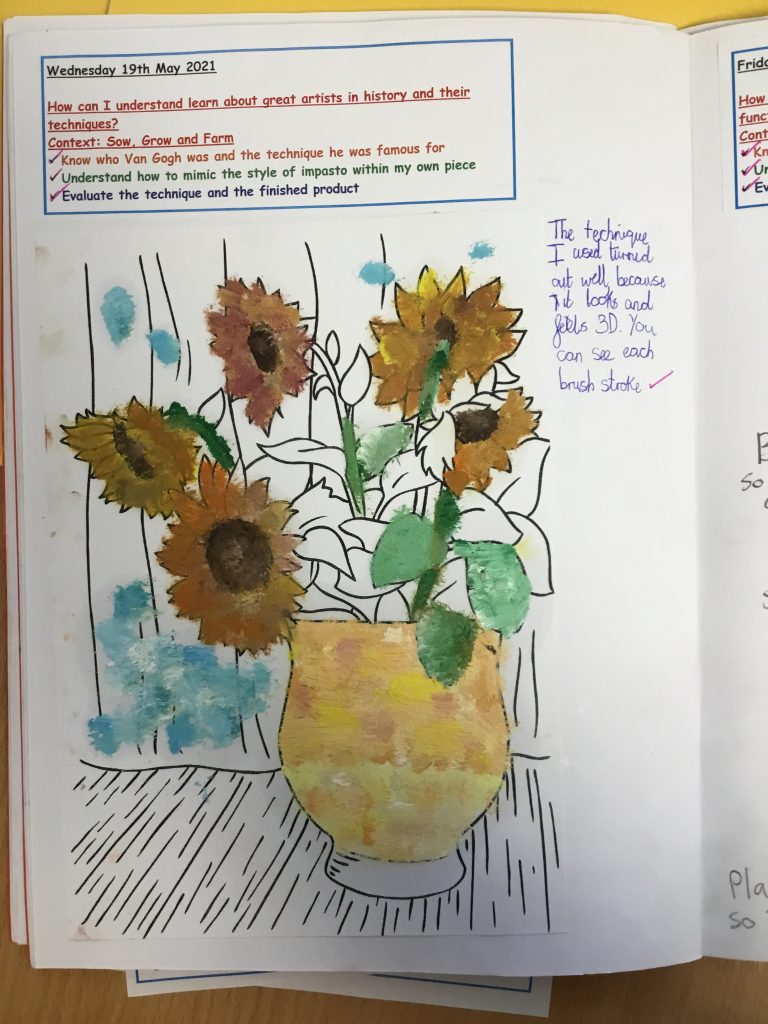 Wednesday 19th May 2021
How can I understand learn about great artists in history and their
techniques?
Context: Sow, Grow and Farm
✓Know who Van Gogh was and the technique he was famous for
✓Understand how to mimic the style of impasto within my own piece
✓Evaluate the technique and the finished product
The technique
I used turned
out well, because
it looks and
feels 3D. You
can see each
brush stroke ✓
How
Pla
so